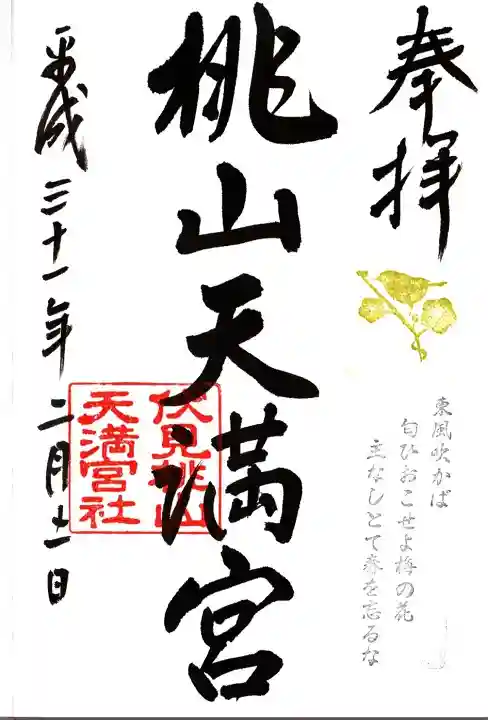 奉拝
東風吹かば
匂ひおこせよ梅の花
主なしとて春を忘るな
桃山天満宮
伏見桃山
天満宮社
平成三十一年二月十一日